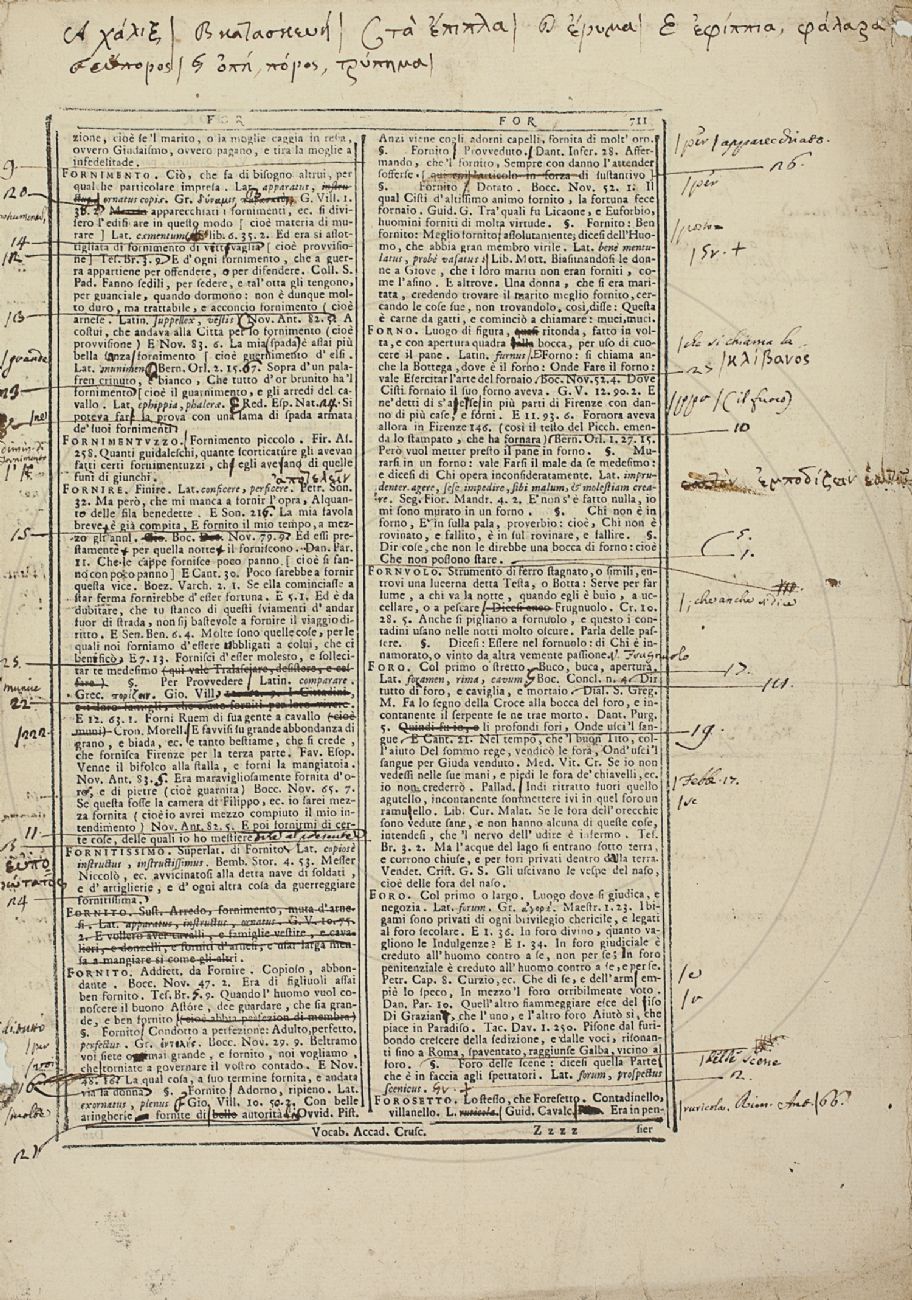 A χάλιξ| B κατασκευή| C τὰ ἔπιπλα| D ἔρυμα| E ἐφίππια, φάλαρα
εὔπορος| ὀπή, πόρος, τρύπημα|
FOR FOR 711
zione, cioè se'l marito, o la moglie caggia in resia,
ovvero Giudaismo, ovvero pagano, e tira la moglie a
infedelitade.
FORNIMENTO. Ciò, che fa di bisogno altrui, per
qualche particolare impresa. Lat. apparatus, instru-
ornatus copia. Gr. G. Vill. 1.
38. 2. apparecchiati i fornimenti, ec. si divi-
sero l'edificare in questo modo [ cioè materia di mu-
rare ] Lat. cementum lib. 6. 35. 2. Ed era sì assot-
tigliata di fornimento di vittuvaglia [ cioè provvisio-
ne ] Tes. Br. 3. 9. E d'ogni fornimento, che a guer-
ra appartiene per offendere, o per difendere. Coll. S.
Pad. Fanno sedili, per sedere, e tal'otta gli tengono,
per guanciale, quando dormono: non è dunque mol-
to duro, ma trattabile, e acconcio fornimento ( cioè
arnese. Latin. suppellex, vestis ( Nov. Ant. 82. 5. A
costui, che andava alla Città per lo fornimento (cioè
provvisione) E Nov. 83. 6. La mia spada è assai più
bella senza fornimento [ cioè guernimento d'essi.
Lat. munimen Bern. Orl. 2. 15. 67. Sopra d'un pala-
fren crinuto, e bianco, Che tutto d'or brunito ha'l
fornimento [ cioè il guarnimento, e gli arredi del ca-
vallo. Lat. ephippia, phaleræ. Red. Esp. Nat. 44. Si
poteva fare la prova con una lama di spada armata
de' suoi fornimenti
FORNIMENTUZZO. Fornimento piccolo. Fir. As.
258. Quanti guidaleschi, quante scorticature gli avevan
fatti certi fornimentuzzi, che gli avevano di quelle
funi di giunchi. ἀποτελεῖν
FORNIRE. Finire. Lat. conficere, perficere. Petr. Son.
32. Ma però, che mi manca a fornir l'opra, Alquan-
to delle fila benedette. E Son. 216. La mia favola
breve è già compita, E fornito il mio tempo, a mez-
zo gli anni. Boc. Nov. 79. 9. Ed essi pre-
stamente per quella notte il forniscono. Dan. Par.
11. Che le cappe fornisce poco panno [ cioè si fan-
no con poco panno] E Cant. 30. Poco sarebbe a fornir
questa vice. Boez. Varch. 2. 1. Se ella cominciasse a
star ferma fornirebbe d'esser fortuna. E 5. 1. Ed è da
dubitare, che tu stanco di questi sviamenti d'andar
fuor di strada, non sij bastevole a fornire il viaggio di-
ritto. E Sen. Ben. 6. 4. Molte sono quelle cose, per le
quali noi forniamo d'essere obbligati a colui, che ci
beneficò E 7. 13. Fornisci d'esser molesto, e solleci-
tar te medesimo ( qui vale Tralasciare, desistere, e ces-
sare) §. Per Provvedere Latin. comparare.
Grec. πορίζειν. Gio. Vill.
E 12. 63. 1. Fornì Ruem di sua gente a cavallo (cioè
munì) Cron. Morell. E favvisi fu grande abbondanza di
grano, e biada, ec. e tanto bestiame, che si crede,
che fornisca Firenze per la terza parte. Fav. Esop.
Venne il bifolco alla stalla, e fornì la mangiatoia.
Nov. Ant. 83. 5. Era maravigliosamente fornita d'o-
ro, e di pietre (cioè guarnita) Bocc. Nov. 65. 7.
Se questa fosse la camera di Filippo, ec. io sarei mez-
za fornita ( cioè io avrei mezzo compiuto il mio in-
tendimento ) Nov. Ant. 82. 5. E poi fornirmi di cer-
te cose, delle quali io ho mestiere
FORNITISSIMO. Superlat. di Fornito Lat. copiosè
instructus, instructissimus. Bemb. Stor. 4. 53. Messer
Niccolò, ec. avvicinatosi alla detta nave di soldati,
e d'artiglierie, e d'ogni altra cosa da guerreggiare
fornitissima.
FORNITO. Sust. Arredo, fornimento, muta d'arne-
si. Lat. apparatus, instructus, ornatus. G. V. 10. 75.
2. E vollero aver cavalli, e famiglie vestire, e cava-
lieri, e donzelli, e forniti d'arnesi, e usar larga men-
sa a mangiare sì come gli altri.
FORNITO. Addiett. da Fornire. Copioso, abbon-
dante. Bocc. Nov. 47. 2. Era di figliuoli assai
ben fornito. Tes. Br. 5. 9. Quando l'huomo vuol co-
noscere il buono Astore, dee guardare, che sia gran-
de, e ben fornito (cioè abbia perfezion di membra)
§. Fornito Condotto a perfezione: Adulto, perfetto.
perfectus. Gr. ἐντελής. Bocc. Nov. 29. 9. Beltramo
voi siete ormai grande, e fornito, noi vogliamo,
che torniate a governare il vostro contado. E Nov.
48. 10. La qual cosa, a suo termine fornita, e andata
via la donna §. Fornito Adorno, ripieno. Lat.
exornatus, plenus Gio. Vill. 10. 50. 2. Con belle
uringherie fornite di belle autorità Ovvid. Pist.
Anzi viene cogli adorni capelli, fornita di molt'oro.
§. Fornito Provveduto. Dant. Infer. 28. Affer-
mando, che'l fornito, Sempre con danno l'attender
sofferse. [ qui coll'articolo in forza di sustantivo ]
§. Fornito Dotato. Bocc. Nov. 52. 1. Il
qual Cisti d'altissimo animo fornito, la fortuna fece
fornaio. Guid. G. Tra' quali fu Licaone, e Euforbio,
huomini forniti di molta virtude. §. Fornito: Ben
fornito: Meglio fornito: assolutamente; dicesi dell'Huo-
mo, che abbia gran membro virile. Lat. benè mentu-
latus, probè vasatus: Lib. Mott. Biasinandosi le don-
ne a Giove, che i loro mariti non eran forniti, co-
me l'asino. E altrove. Una donna, che si era mari-
tata, credendo trovare il marito meglio fornito, cer-
cando le cose sue, non trovandolo, così, disse: Questa
è carne da gatti, e cominciò a chiamare: muci, muci.
FORNO. Luogo di figura, quasi ritonda, fatto in vol-
ta, e con apertura quadra bocca, per uso di cuo-
cere il pane. Latin. furnus. Forno: si chiama an-
che la Bottega, dove è il forno: Onde Fare il forno:
vale Esercitar l'arte del fornaio. Boc. Nov. 52. 4. Dove
Cisti fornaio il suo forno aveva. G. V. 12. 90. 2. E
ne' detti dì s'aperse in più parti di Firenze con dan-
no di più case, e forni. E 11. 93. 6. Fornora aveva
allora in Firenze 146. (così il testo del Picch. emen-
da lo stampato, che ha fornara) Bern. Orl. 1. 27. 15.
Però vuol metter presto il pane in forno. §. Mu-
rarsi in un forno: vale Farsi il male da se medesimo:
e dicesi di Chi opera inconsideratamente. Lat. impru-
denter agere, sese impedire, sibi malum, & molestiam crea-
re. Seg. Fior. Mandr. 4. 2. E' non s'è fatto nulla, io
mi sono murato in un forno. §. Chi non è in
forno, E' in sulla pala, proverbio: cioè, Chi non è
rovinato, e fallito, è in sul rovinare, e fallire. §.
Dir cose, che non le direbbe una bocca di forno: cioè
Che non possono stare.
FORNUOLO. Strumento di ferro stagnato, o simili, en-
trovi una lucerna detta Testa, o Botta: Serve per far
lume, a chi va la notte, quando egli è buio, a uc-
cellare, o a pescare. Dicesi anco Frugnuolo. Cr. 10.
28. 5. Anche si pigliano a fornuolo, e questo i con-
tadini usano nelle notti molto oscure. Parla delle pas-
sere. §. Dicesi: Essere nel fornuolo: di Chi è in-
namorato, o vinto da altra vemente passione. V. Frugnuolo
FORO. Col primo o stretto, Buco, buca, apertura.
Lat. foramen, rima, cavum. Boc. Concl. n. 4. Dir
tutto dì foro, e caviglia, e mortaio. Dial. S. Greg.
M. Fa lo segno della Croce alla bocca del foro, e in-
contanente il serpente se ne trae morto. Dant. Purg.
5. Quindi fu' io, e li profondi fori, Onde uscì'l san-
gue E Cant. 21. Nel tempo, che'l buon Tito, col-
l'aiuto Del sommo rege, vendicò le fora, Ond'uscì'l
sangue per Giuda venduto. Med. Vit. Cr. Se io non
vedessi nelle sue mani, e piedi le fora de' chiavelli, ec.
io non crederrò. Pallad. Indi ritratto fuori quello
agutello, incontanente sommettere ivi in quel foro un
ramuscello. Lib. Cur. Malat. Se le fora dell'orecchie
sono vedute sane, e non hanno alcuna di queste cose,
intendesi, che'l nervo dell'udire è infermo. Tes.
Br. 3. 2. Ma l'acque del lago si entrano sotto terra,
e corrono chiuse, e per fori privati dentro dalla terra.
Vendet. Crist. G. S. Gli uscivano le vespe del naso,
cioè delle fora del naso.
FORO. Col primo o largo. Luogo dove si giudica, e
negozia. Lat. forum. Gr. ἀγορά. Maestr. 1. 23. I bi-
gami sono privati di ogni brivilegio chericile, e legati
al foro secolare. E 1. 36. In foro divino, quanto va-
gliono le Indulgenze? E 1. 34. In foro giudiciale è
creduto all'huomo contro a se, non per se; In foro
penitenziale è creduto all'huomo contro a se, e per se.
Petr. Cap. 8. Curzio, ec. Che di se, e dell'armi em-
piè lo speco, In mezzo'l foro orribilmente voto.
Dan. Par. 10. Quell'altro fiammeggiare esce del riso
Di Grazian, che l'uno, e l'altro foro Aiutò sì, che
piace in Paradiso. Tac. Dav. 1. 250. Pisone dal furi-
bondo crescere della sedizione, e dalle voci, risonan-
ti sino a Roma, spaventato, raggiunse Galba, vicino al
foro. §. Foro delle scene: dicesi quella Parte
che è in faccia agli spettatori. Lat. forum, prospectus
scenicus.
FOROSETTO. Lo stesso, che Foresetto. Contadinello,
villanello. L. ruricola. Guid. Cavalc. Era in pen-
Vocab. Accad. Crusc. Zzzz sier
9.
20
14
12
13
/grande
23
15
25.
22
/222
11
24
/per
/molte
/per /apparecchiato.
26.
/per
/che si chiama la
/κλίβανος
23
(il fuoco)
10
ἐμποδίζειν
5.
1.
/; che anche si dice
17.
19.
/Febb. 17.
/se
/o
/v
delle Scene
2.
/ruricola. Rim. Ant. /66.